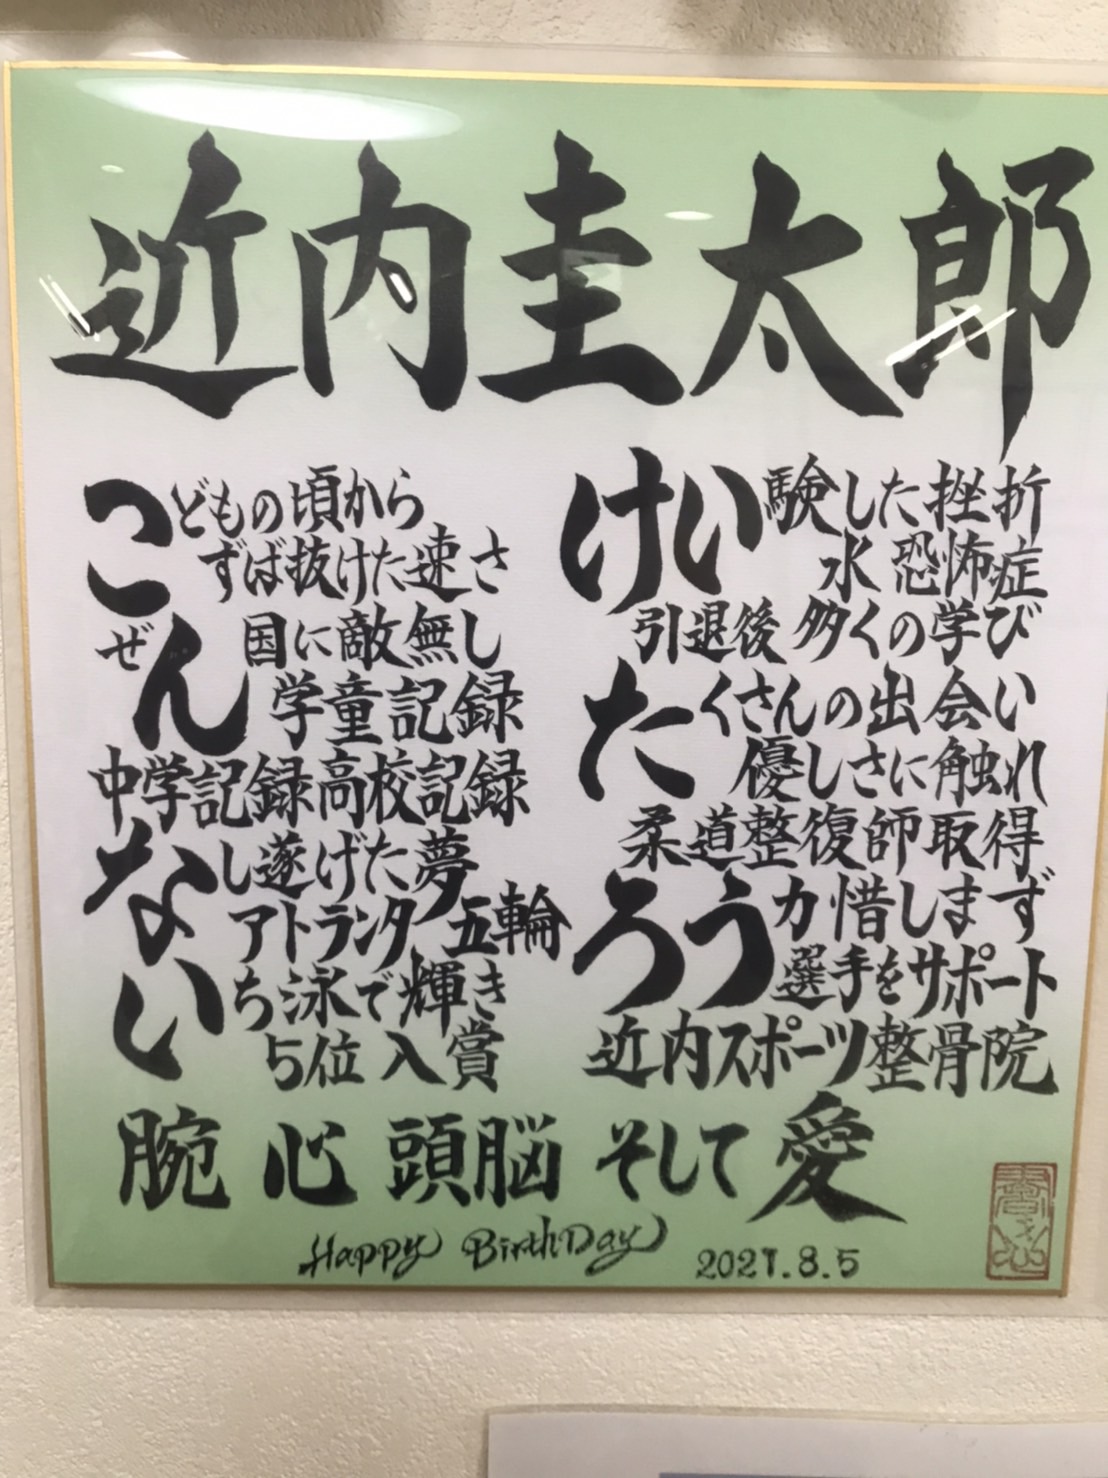 近内圭太郎
こどもの頃から
ずば抜けた速さ
ぜん国に敵無し
学童記録
中学記録高校記録
なし遂げた夢
アトランタ五輪
いち泳で輝き
5位入賞
けい験した挫折
水恐怖症
引退後多くの学び
たくさんの出会い
優しさに触れ
柔道整復師取得
ろう力惜しまず
選手をサポート
近内スポーツ整骨院
腕 心 頭脳 そして 愛
Happy BirthDay 2021.8.5